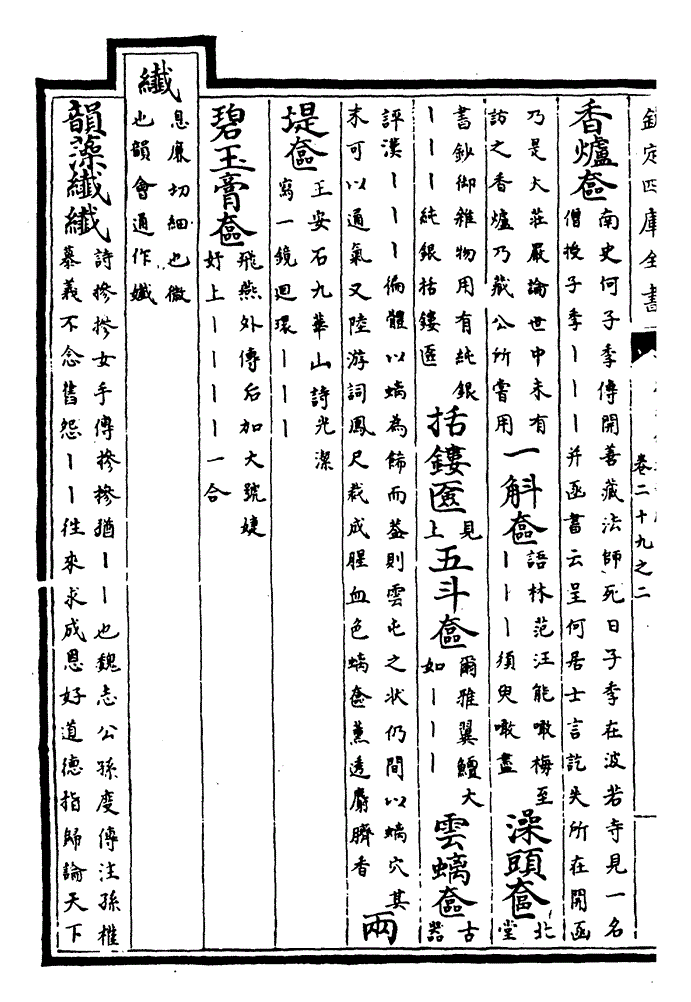 欽定四庫全書
卷二十九之二
香爐奩
南史何子季傳開善藏法師死日子季在波若寺見一名
僧授子季丨丨丨并函書云呈何居士言訖失所在開函
乃是大莊嚴論世中未有
訪之香爐乃藏公所嘗用
一斛奩
語林范汪能噉梅至
丨丨丨須臾噉盡
澡頭奩
北
堂
書鈔御雜物用有純銀
丨丨丨純銀括鏤匳
括鏤匳
見
上
五斗奩
爾雅翼鱣大
如丨丨丨
雲螭奩
古
器
評漢丨丨丨徧體以螭為飾而葢則雲屯之狀仍間以螭穴其
末可以通氣又陸游詞鳳尺裁成腥血色螭奩薰透麝臍香
兩
堤奩
王安石九華山詩光潔
寫一鏡迴環丨丨
碧玉膏奩
飛燕外傳后加大號婕
妤上丨丨丨丨一合
纖
息廉切細也微
也韻會通作孅
韻藻纖纖
詩摻摻女手傳摻摻猶丨丨也魏志公孫度傳注孫權
慕義不念舊怨丨丨往來求成恩好道德指歸論天下